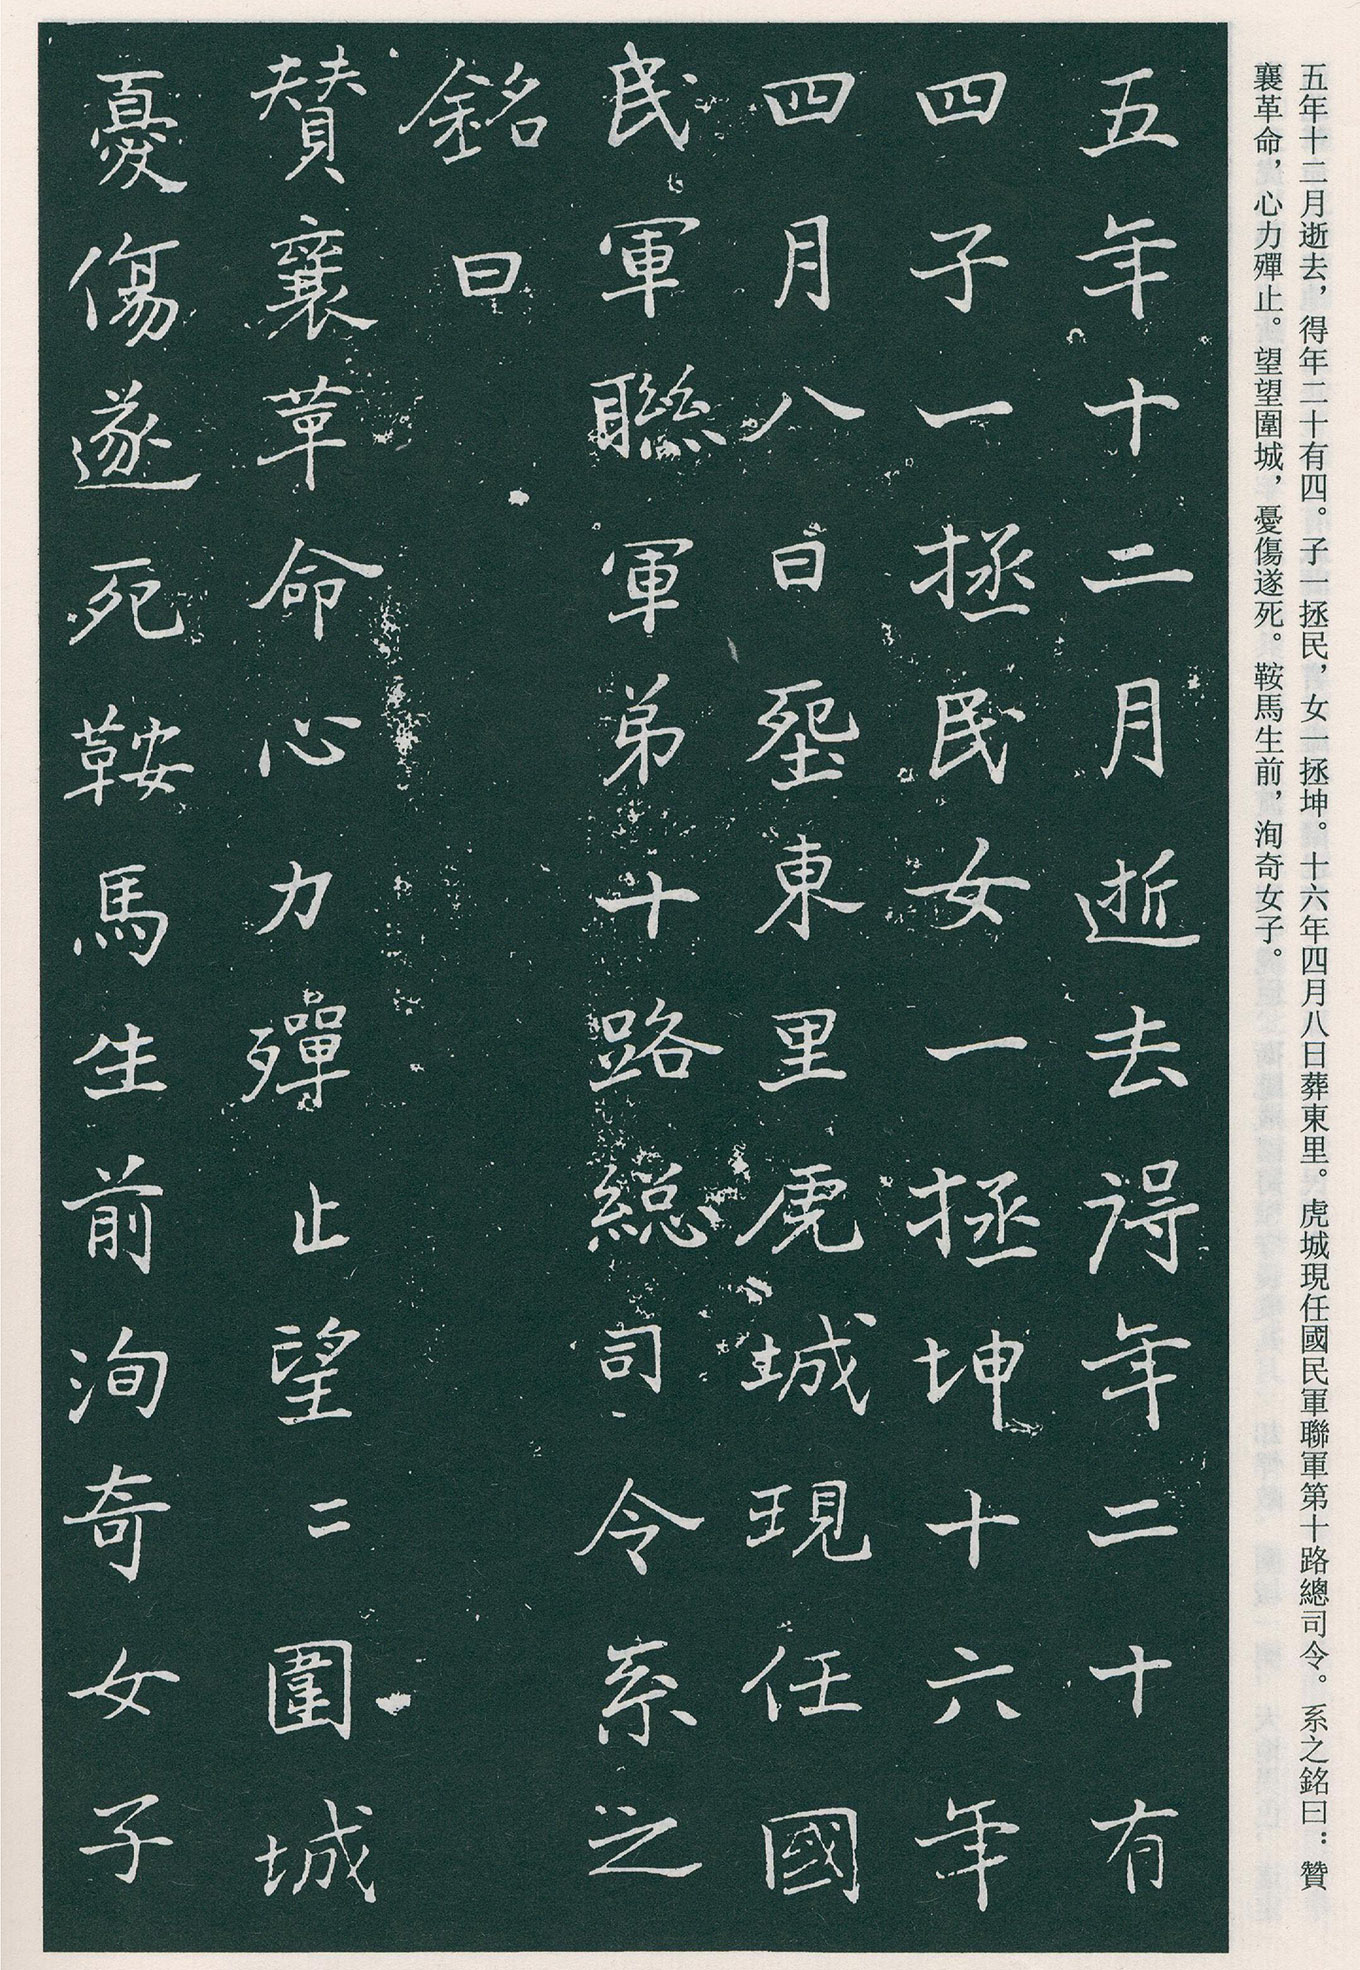 五年十二月逝去，得年二十有四。子一拯民，女一拯坤。十六年四月八日葬東里。虎城現任國民軍聯軍第十路總司令。系之銘曰：贊
襄革命，心力殫止。望望圍城，憂傷遂死。鞍馬生前，洵奇女子。
五年十二月逝去得年二十有
四子一拯民女一拯坤十六年
四月八日垩東里虎城現任國
民軍聯軍弟十路総司令系之
銘曰
賛襄革命心力殫止望二圍城
憂傷遂死鞍馬生前洵奇女子